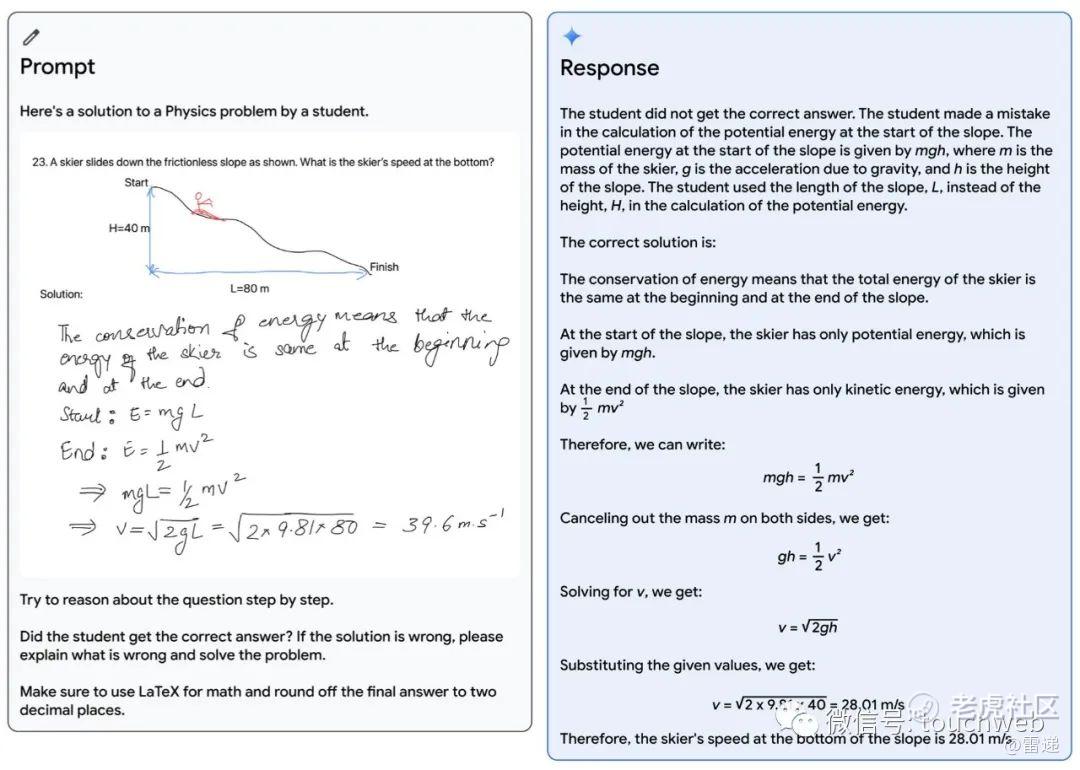 Prompt
Here's a solution to a Physics problem by a student.
23. A skier slides down the frictionless slope as shown. What is the skier's speed at the bottom?
Start
H=40 m
Finish
L=80 m
Solution:
The conservation of energy means that the
energy of the skier is same at the beginning
and at the end.
Start: E = mgL
End: E = 1/2 mv²
⇒ mgL = 1/2 mv²
⇒ v = √2gL = √2×9.81×80 = 39.6 m.s⁻¹
Try to reason about the question step by step.
Did the student get the correct answer? If the solution is wrong, please
explain what is wrong and solve the problem.
Make sure to use LaTeX for math and round off the final answer to two
decimal places.
Response
The student did not get the correct answer. The student made a mistake
in the calculation of the potential energy at the start of the slope. The
potential energy at the start of the slope is given by mgh, where m is the
mass of the skier, g is the acceleration due to gravity, and h is the height
of the slope. The student used the length of the slope, L, instead of the
height, H, in the calculation of the potential energy.
The correct solution is:
The conservation of energy means that the total energy of the skier is
the same at the beginning and at the end of the slope.
At the start of the slope, the skier has only potential energy, which is
given by mgh.
At the end of the slope, the skier has only kinetic energy, which is given
by 1/2 mv²
Therefore, we can write:
mgh = 1/2 mv²
Canceling out the mass m on both sides, we get:
gh = 1/2 v²
Solving for v, we get:
v = √2gh
Substituting the given values, we get:
v = √2 x 9.81 x 40 = 28.01 m/s
Therefore, the skier's speed at the bottom of the slope is 28.01 m/s.
老虎社区
微信号: touchweb
@雷递